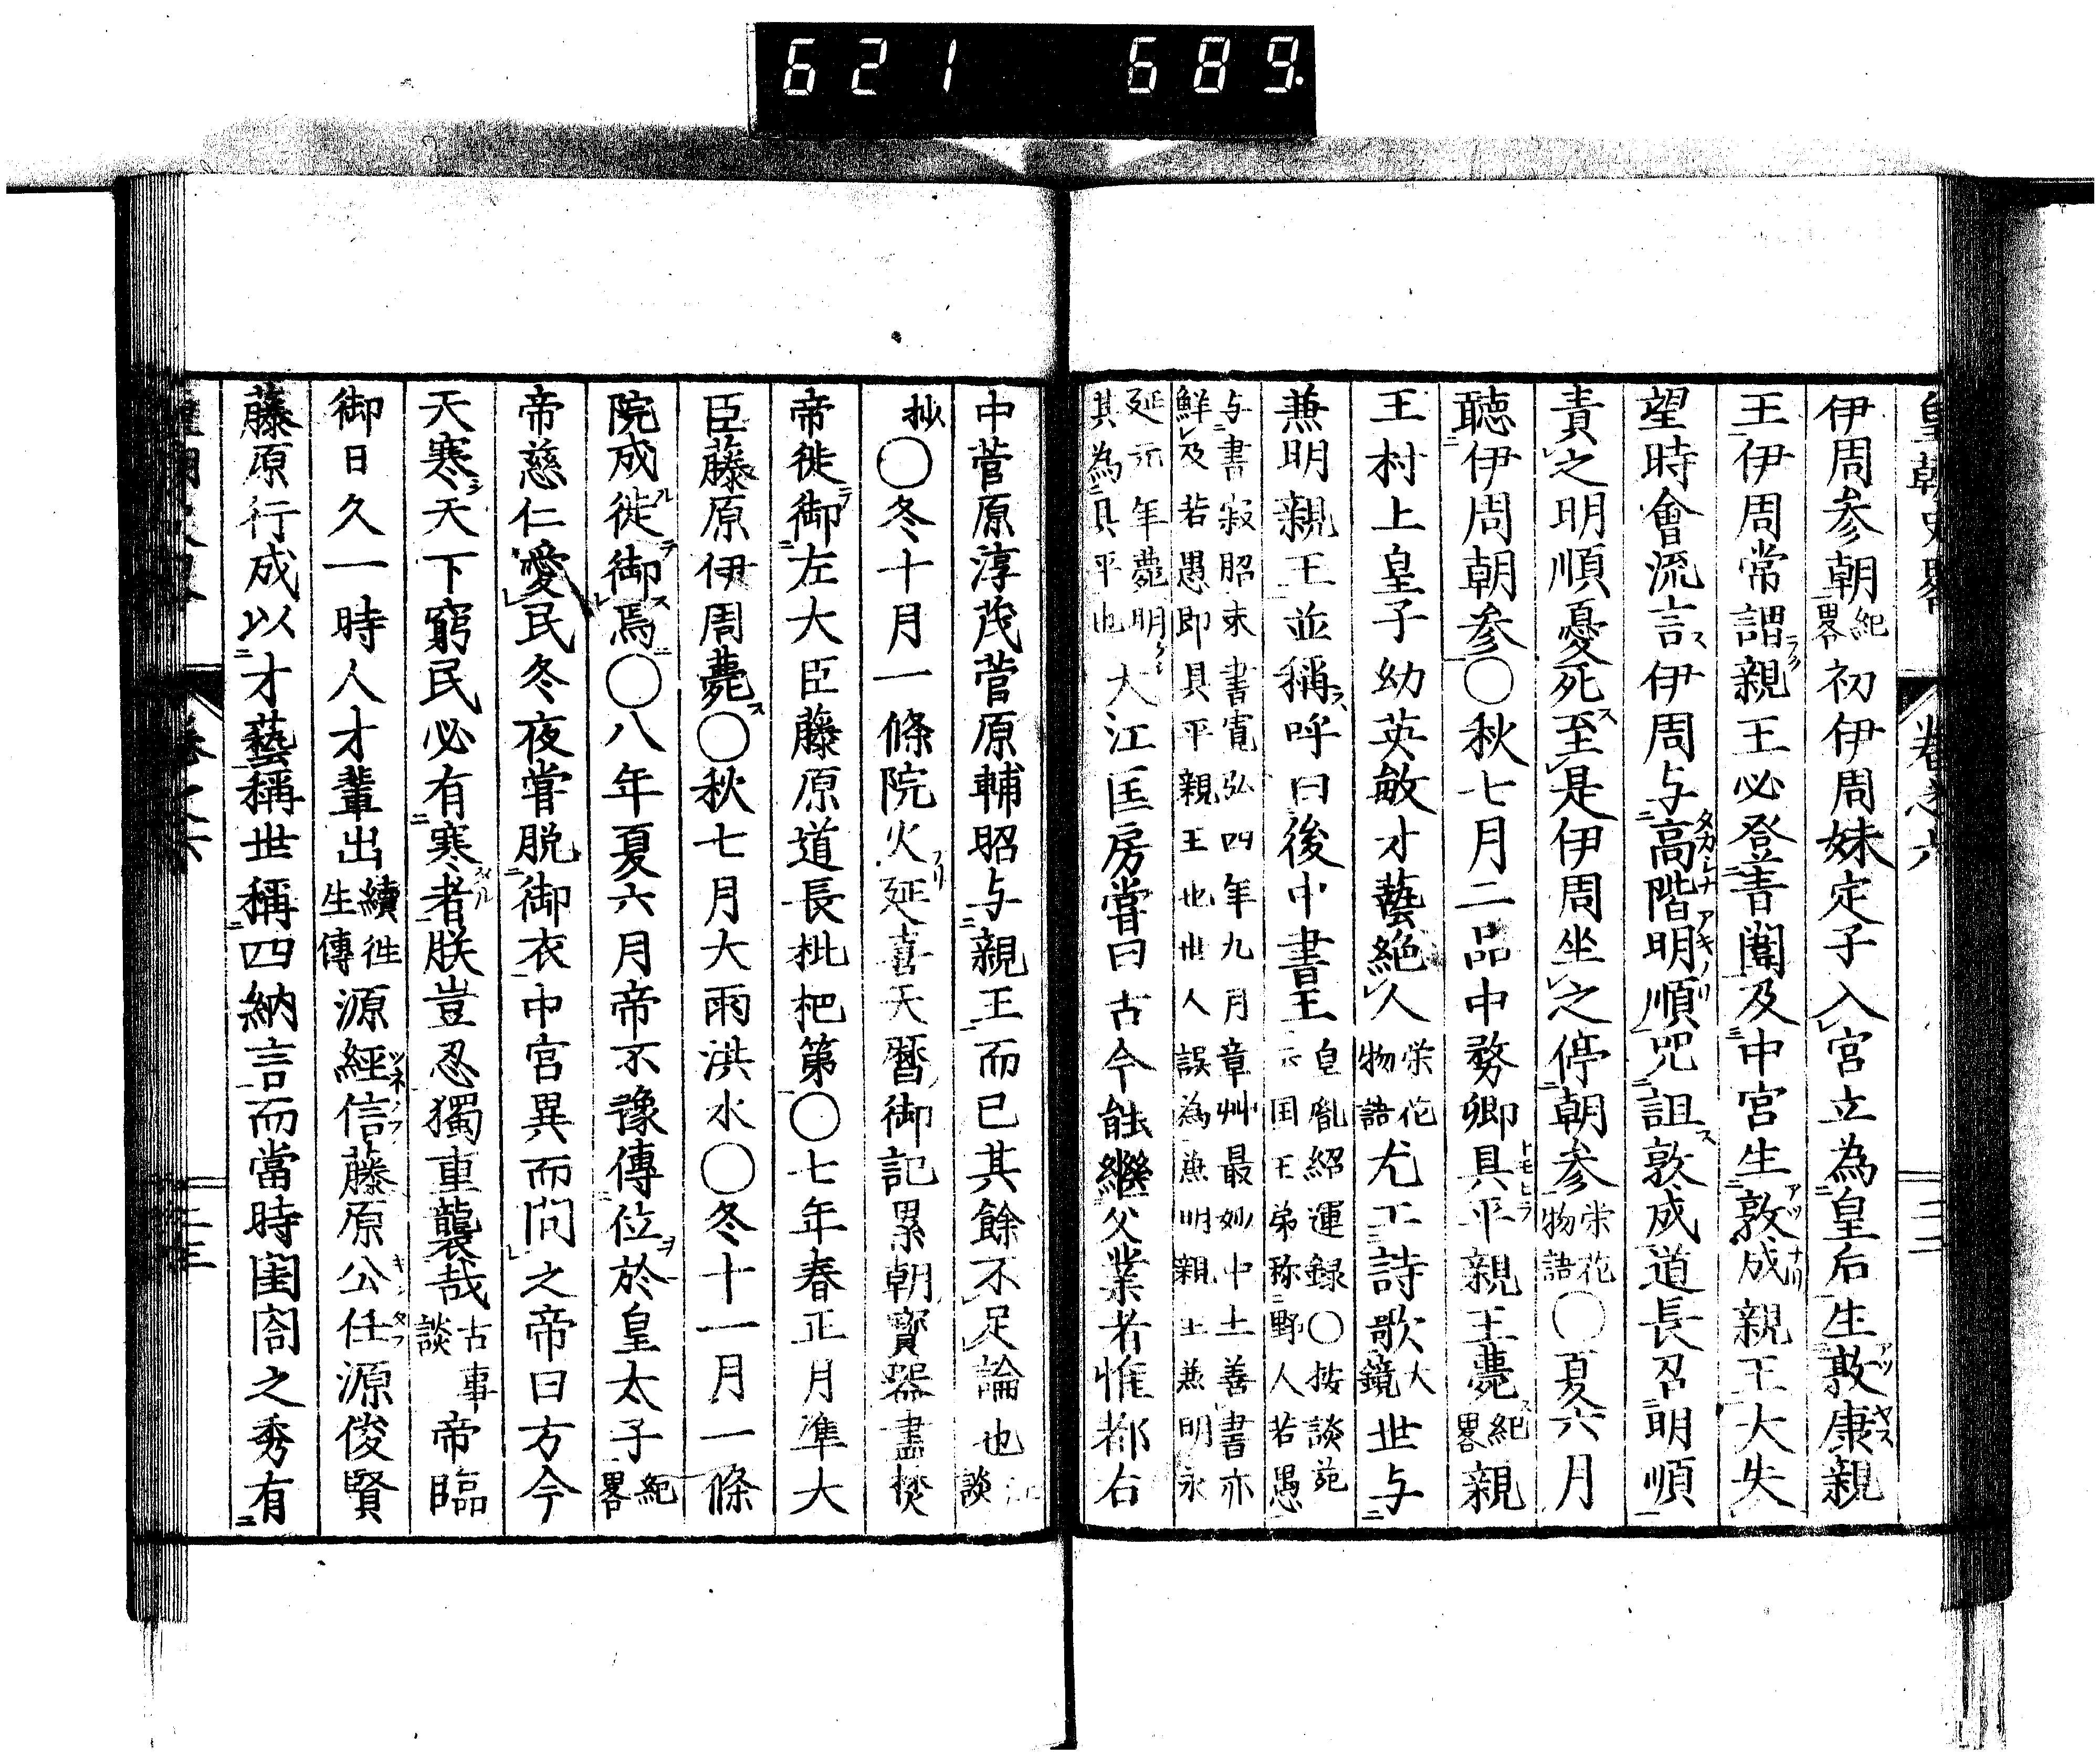 621 689.
皇朝史畧 卷之六 二二
伊周参朝紀畧初伊周妹定子入宮立為皇后生敦康親
王伊周常謂親王必登青闈及中宮生敦成親王大失
望時會流言伊周与高階明順咒詛敦成道長召明順
責之明順憂死至是伊周坐之停朝参栄花物語○夏六月
聴伊周朝参○秋七月二品中務卿具平親王薨紀畧親
王村上皇子幼英敏才藝絶人栄花物語尤工詩歌大鏡世与
兼明親王並稱呼曰後中書王皇胤紹運録○按談苑云国王弟称野人若愚
与書寂昭末書寛弘四年九月章艸最妙中土善書亦
鮮及若愚即具平親王也世人誤為兼明親王兼明永
延元年薨明
其為具平也大江匡房嘗曰古今能継父業者惟都右
中菅原淳茂菅原輔昭与親王而已其餘不足論也江談
抄○冬十月一條院火延喜天暦御記累朝寳器盡焚
帝徙御左大臣藤原道長枇杷第○七年春正月準大
臣藤原伊周薨○秋七月大雨洪水○冬十一月一條
院成徙御焉○八年夏六月帝不豫傳位於皇太子紀畧
帝慈仁愛民冬夜嘗脱御衣中宮異而問之帝曰方今
天寒天下窮民必有寒者朕豈忍獨重襲哉古事談帝臨
御日久一時人才輩出續往生傳源經信藤原公任源俊賢
藤原行成以才藝稱世稱四納言而當時閨閤之秀有
卷之六 二三